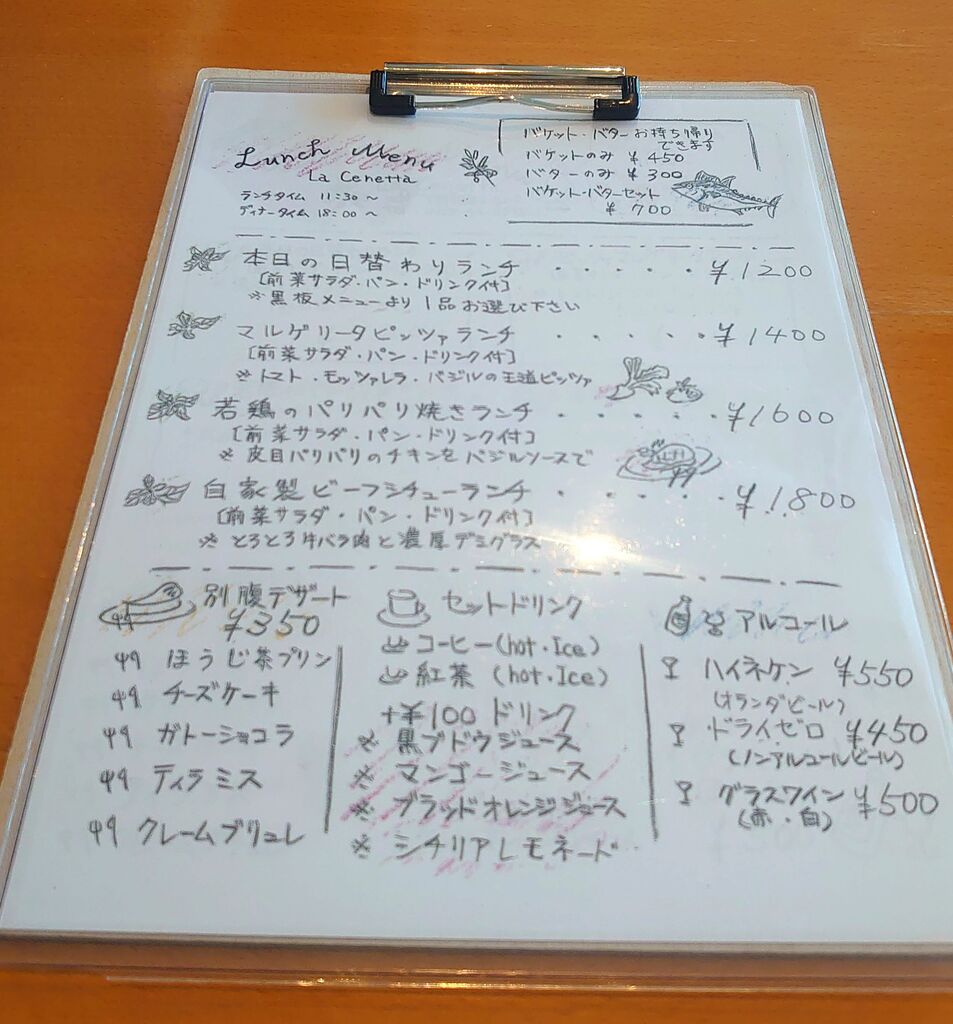 Lunch Menu
La Cenetta
ランチタイム 11:30〜
ディナータイム 18:00〜
バケット・バターお持ち帰り
できます
バケットのみ ¥450
バターのみ ¥300
バケット・バターセット
¥700
本日の日替わりランチ ・・・・・¥1200
[前菜サラダ・パン・ドリンク付]
※黒板メニューより1品お選び下さい
マルゲリータピッツァランチ ・・・・・¥1400
[前菜サラダ・パン・ドリンク付]
※トマト・モッツァレラ・バジルの王道ピッツァ
若鶏のパリパリ焼きランチ ・・・・・¥1600
[前菜サラダ・パン・ドリンク付]
※皮目パリパリのチキンをバジルソースで
自家製ビーフシチューランチ ・・・・・¥1800
[前菜サラダ・パン・ドリンク付]
※とろとろ牛バラ肉と濃厚デミグラス
別腹デザート
¥350
ほうじ茶プリン
チーズケーキ
ガトーショコラ
ティラミス
クレームブリュレ
セットドリンク
コーヒー(hot・Ice)
紅茶(hot・Ice)
+¥100ドリンク
※黒ブドウジュース
※マンゴージュース
※ブラッドオレンジジュース
※シチリアレモネード
アルコール
ハイネケン ¥550
(オランダビール)
ドライゼロ ¥450
(ノンアルコールビール)
グラスワイン ¥500
(赤・白)